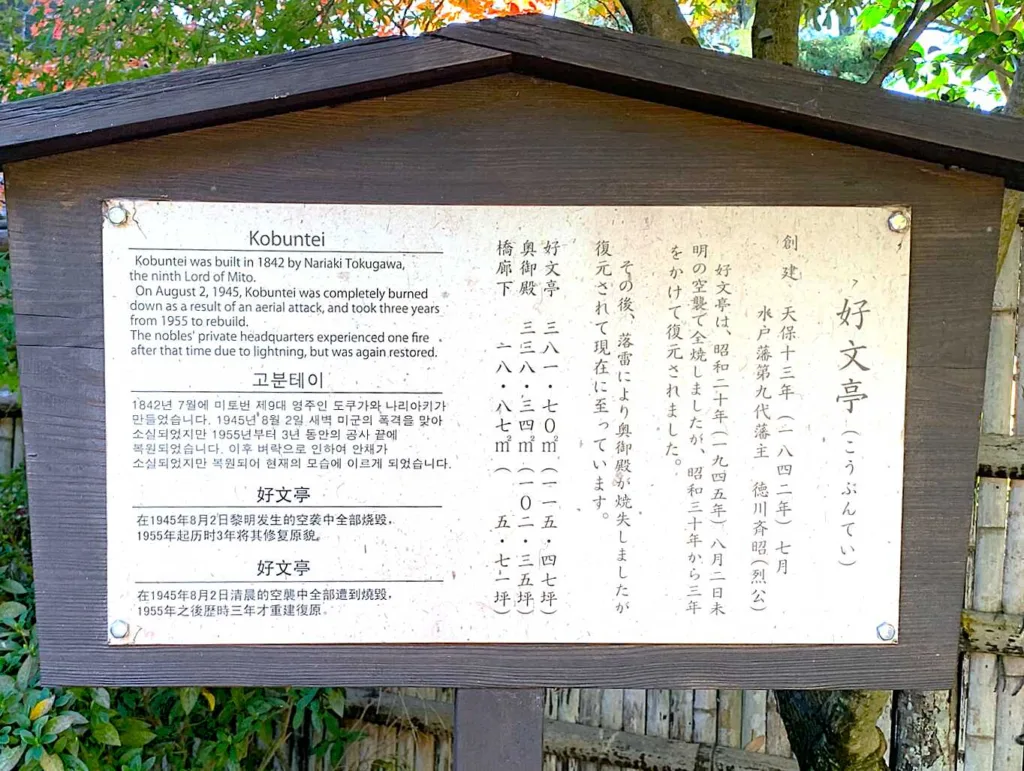 Kobuntei
Kobuntei was built in 1842 by Nariaki Tokugawa,
the ninth Lord of Mito.
On August 2, 1945, Kobuntei was completely burned
down as a result of an aerial attack, and took three years
from 1955 to rebuild.
The nobles' private headquarters experienced one fire
after that time due to lightning, but was again restored.
고분테이
1842년 7월에 미토번 제9대 영주인 도쿠가와 나리아키가
만들었습니다. 1945년 8월 2일 새벽 미군의 폭격을 맞아
소실되었지만 1955년부터 3년 동안의 공사 끝에
복원되었습니다. 이후 벼락으로 인하여 안채가
소실되었지만 복원되어 현재의 모습에 이르게 되었습니다.
好文亭
在1945年8月2日黎明发生的空袭中全部烧毁，
1955年起历时3年将其修复原貌。
好文亭
在1945年8月2日清晨的空襲中全部遭到燒毀，
1955年之後歷時三年才重建復原。
好文亭（こうぶんてい）
創建 天保十三年（一八四二年）七月
水戸藩第九代藩主 徳川斉昭（烈公）
好文亭は、昭和二十年（一九四五年）八月二日未
明の空襲で全焼しましたが、昭和三十年から三年
をかけて復元されました。
その後、落雷により奥御殿が焼失しましたが
復元されて現在に至っています。
好文亭 三八一・七〇㎡（一一五・四七坪）
奥御殿 三三八・三四㎡（一〇二・三五坪）
橋廊下 一八・八七㎡（五・七一坪）